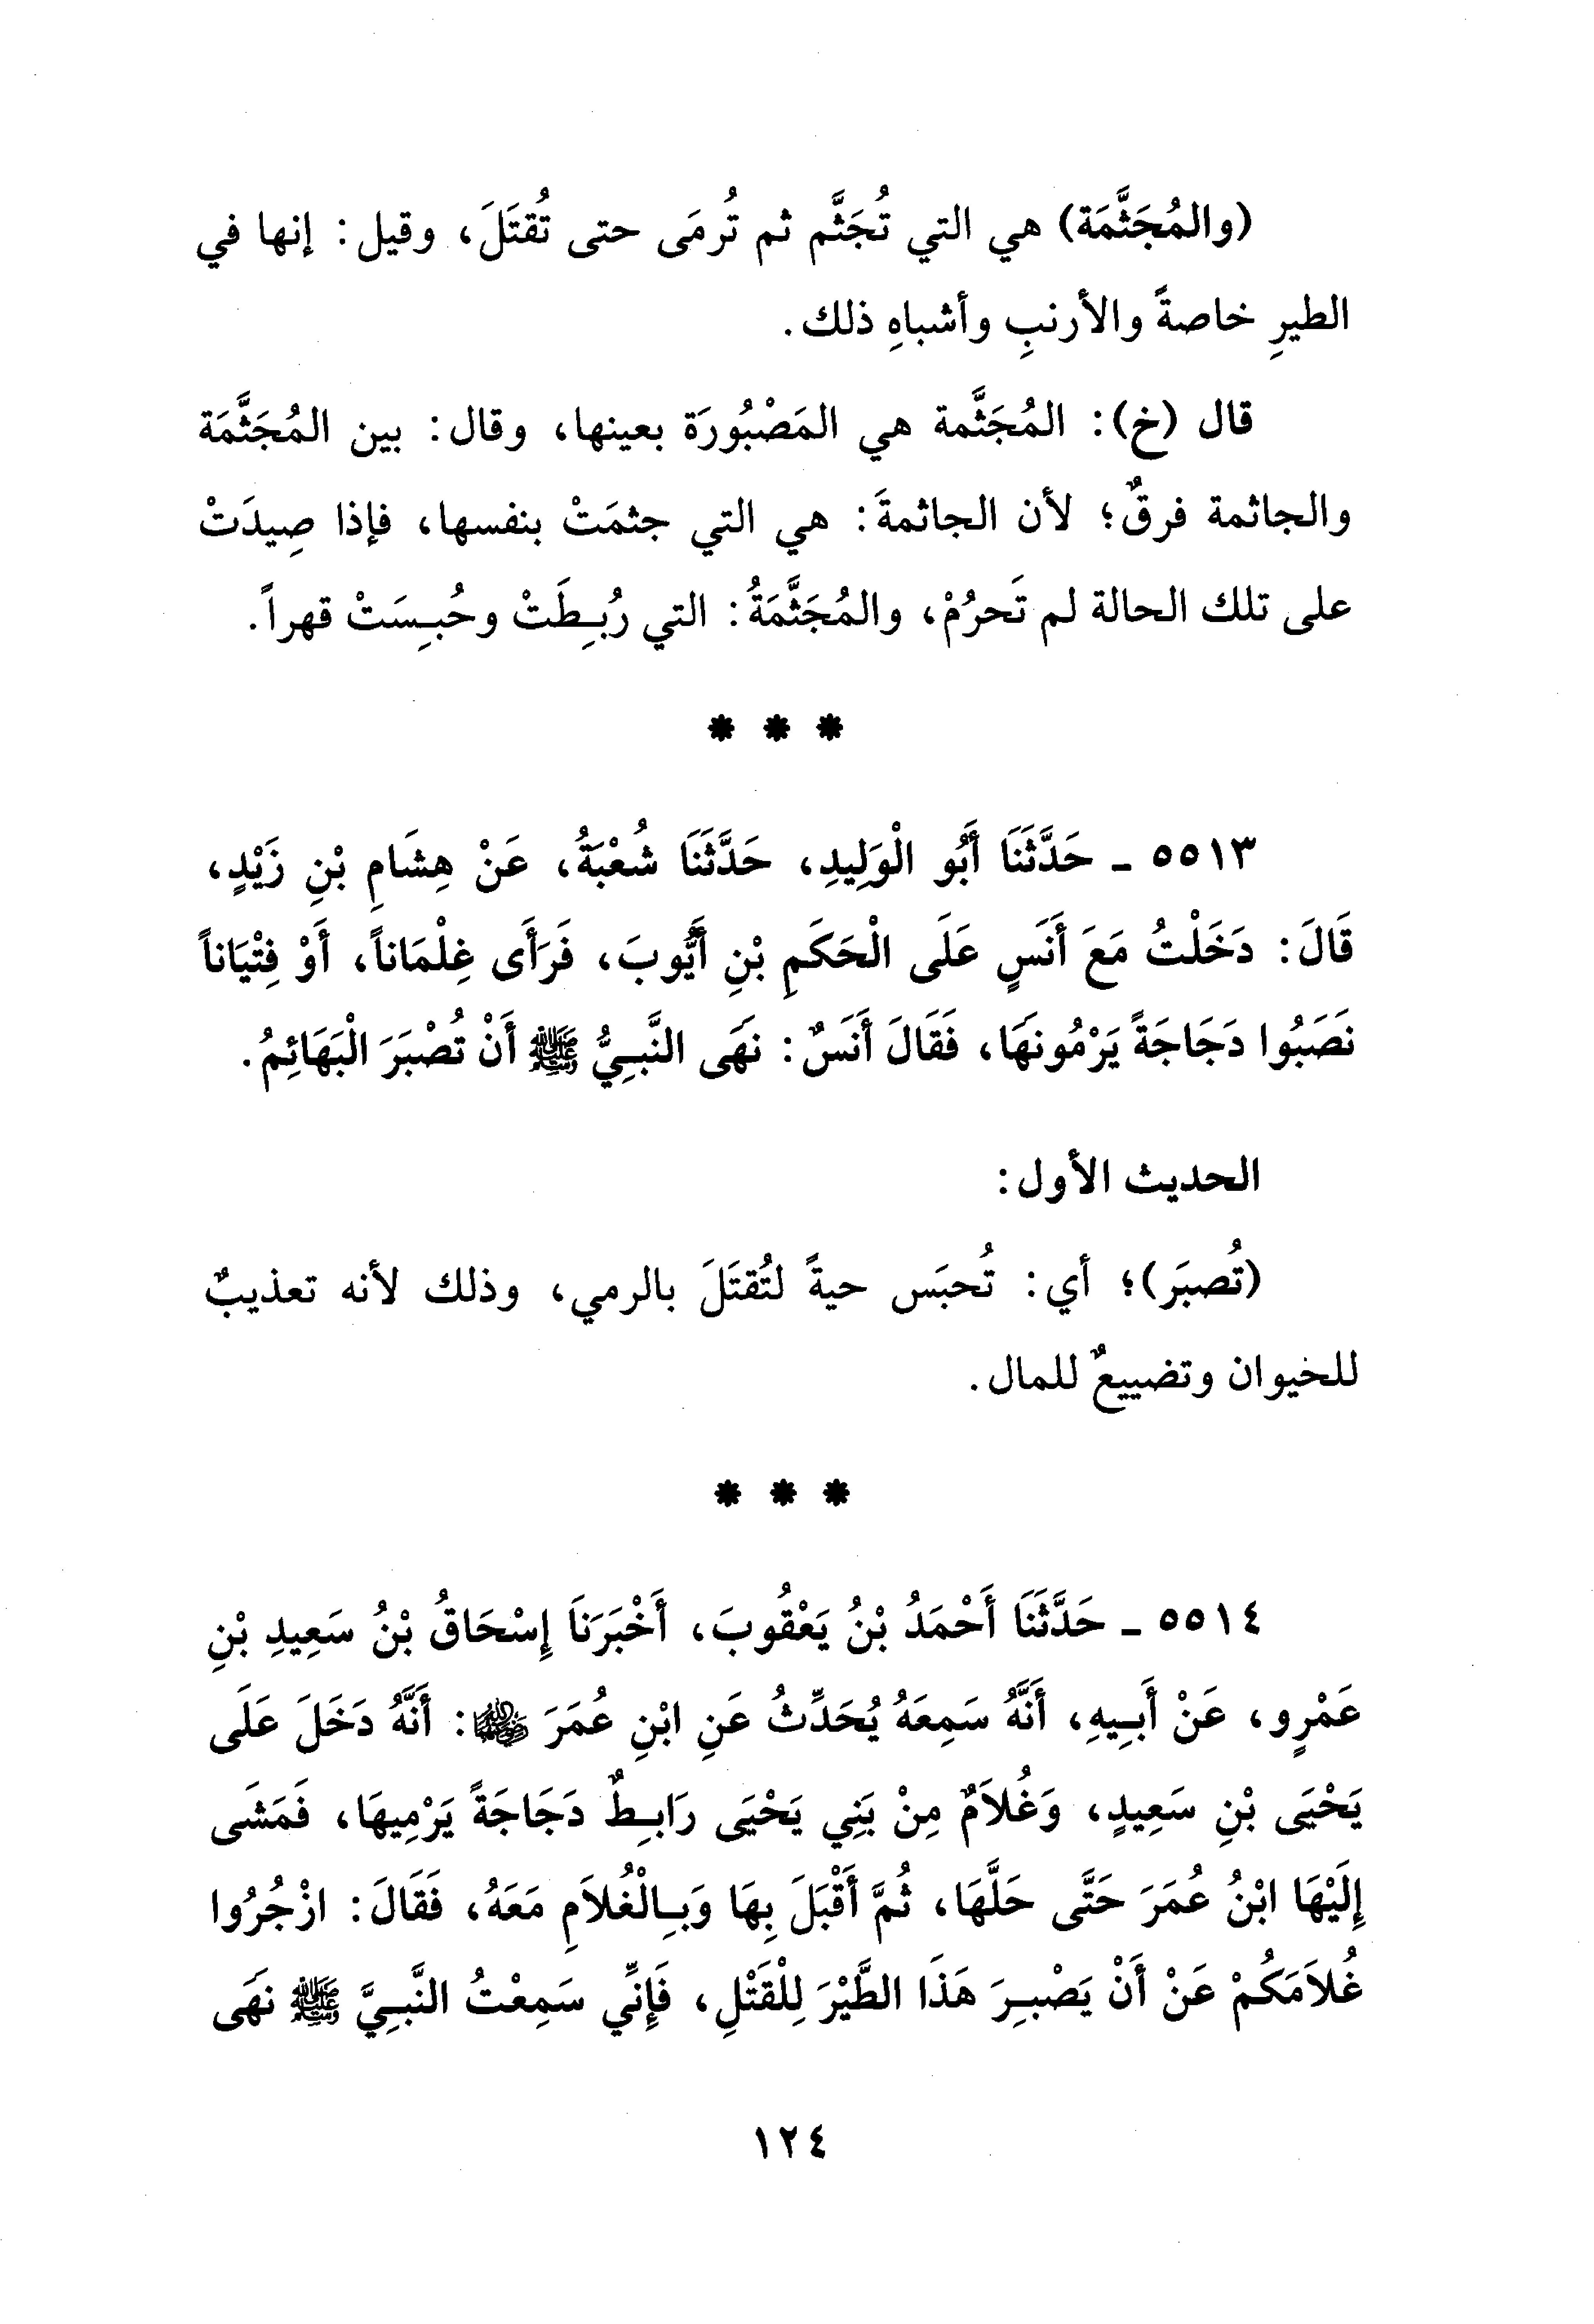 (والمُجَثَّمَة) هي التي تُجَثَّم ثم تُرمَى حتى تُقتَلَ، وقيل: إنها في
الطيرِ خاصةً والأرنبِ وأشباهِ ذلك.
قال (خ): المُجَثَّمة هي المَصْبُورَة بعينها، وقال: بين المُجَثَّمَة
والجاثمة فرقٌ؛ لأن الجاثمةَ: هي التي جثمَتْ بنفسها، فإذا صِيدَتْ
على تلك الحالة لم تَحرُمْ، والمُجَثَّمَةُ: التي رُبِطَتْ وحُبِسَتْ قهراً.
* * *
٥٥١٣ ـ حَدَّثَنَا أَبُو الْوَلِيدِ، حَدَّثَنَا شُعْبَةُ، عَنْ هِشَامِ بْنِ زَيْدٍ،
قَالَ: دَخَلْتُ مَعَ أَنَسٍ عَلَى الْحَكَمِ بْنِ أَيُّوبَ، فَرَأَى غِلْمَاناً، أَوْ فِتْيَاناً
نَصَبُوا دَجَاجَةً يَرْمُونَهَا، فَقَالَ أَنَسٌ: نَهَى النَّبِيُّ ﷺ أَنْ تُصْبَرَ الْبَهَائِمُ.
الحديث الأول:
(تُصبَر)؛ أي: تُحبَس حيةً لتُقتَلَ بالرمي، وذلك لأنه تعذيبٌ
للخيوان وتضييعٌ للمال.
* * *
٥٥١٤ ـ حَدَّثَنَا أَحْمَدُ بْنُ يَعْقُوبَ، أَخْبَرَنَا إِسْحَاقُ بْنُ سَعِيدِ بْنِ
عَمْرٍو، عَنْ أَبِيهِ، أَنَّهُ سَمِعَهُ يُحَدِّثُ عَنِ ابْنِ عُمَرَ ﵁: أَنَّهُ دَخَلَ عَلَى
يَحْيَى بْنِ سَعِيدٍ، وَغُلاَمٌ مِنْ بَنِي يَحْيَى رَابِطٌ دَجَاجَةً يَرْمِيهَا، فَمَشَى
إِلَيْهَا ابْنُ عُمَرَ حَتَّى حَلَّهَا، ثُمَّ أَقْبَلَ بِهَا وَبِالْغُلاَمِ مَعَهُ، فَقَالَ: ازْجُرُوا
غُلاَمَكُمْ عَنْ أَنْ يَصْبِرَ هَذَا الطَّيْرَ لِلْقَتْلِ، فَإِنِّي سَمِعْتُ النَّبِيَّ ﷺ نَهَى
١٢٤